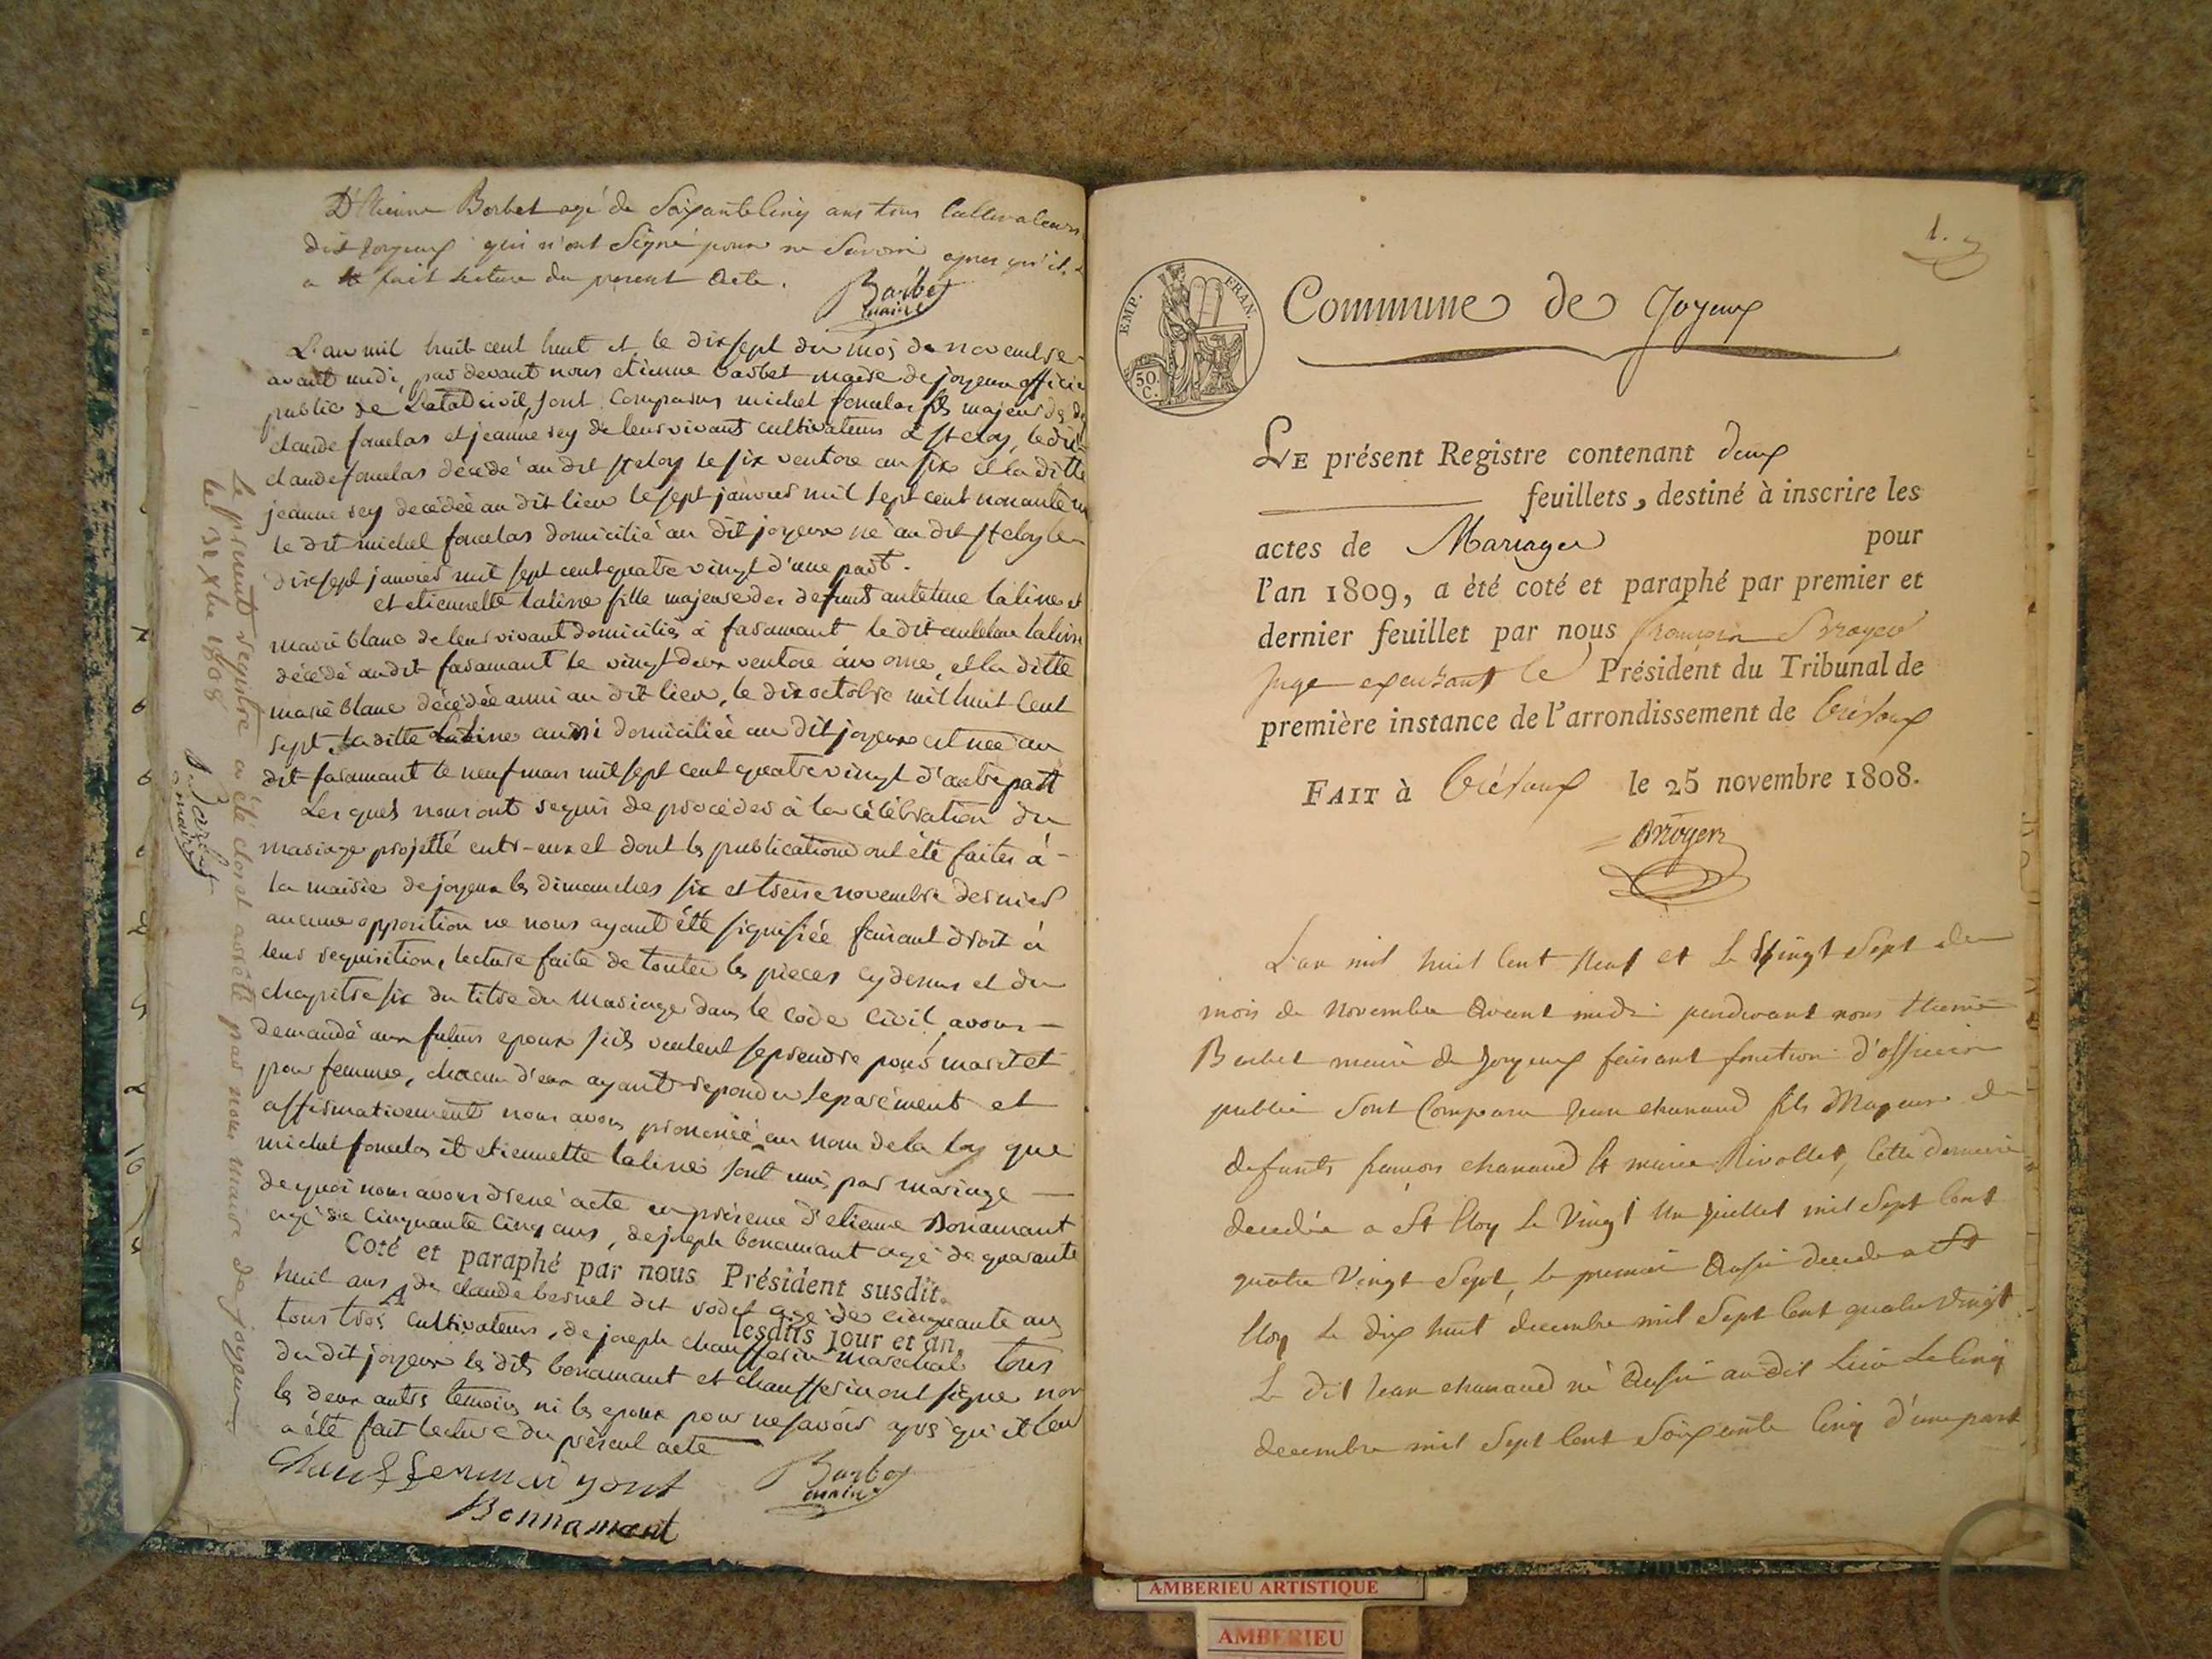 D'Etienne Borbet agé de Soixante Cinq ans tous Cultivateurs
dit Joyeux qui n'ont Signé pour ne Savoir apres qu'il
a fait lecture du present Acte.
Barbet
maire
L'an mil huit cent huit et le dix sept du mois de novembre
avant midi, par devant nous etienne barbet maire de joyeux officier
public de L'Etat Civil, sont Comparus michel foncelas fils majeur de
claude foncelas et jeanne rey de leur vivant cultivateurs à st eloy, ledit
claude foncelas décédé au dit st eloy le six ventose an six et la ditte
jeanne rey decédée au dit lieu le sept janvier mil sept cent nonante
le dit michel foncelas domicilié au dit joyeux né au dit st eloy le
dix sept janvier mil sept cent quatre vingt d'une part.
et etiennette laline fille majeure des defunts antelme laline et
marie blanc de leur vivant domiciliés à faramant le dit antelme laline
décédé audit faramant le vingt deux ventose an onze, et la ditte
marie blanc décédée aussi au dit lieu, le dix octobre mil huit Cent
sept, la ditte Laline aussi domiciliée au dit joyeux est née au
dit faramant le neuf mars mil sept cent quatre vingt d'autre part
Les quels nous ont requis de procéder à la célébration du
mariage projetté entr-eux et dont les publications ont été faites à
la mairie de joyeux les dimanches six et treize novembre dernier
aucune opposition ne nous ayant été signifiée faisant droit à
leur requisition, lecture faite de toutes les pieces cy dessus et du
chapitre six du titre du Mariage dans le code Civil, avons
demandé aux futurs epoux s'ils veulent se prendre pour mari et
pour femme, chacun d'eux ayant repondu separément et
affirmativement nous avons prononcé au nom de la loy que
michel foncelas et etiennette laline sont unis par mariage
de quoi nous avons dressé acte en présence d'etienne Bonamant
agé de Cinquante Cinq ans, de joseph bonamant agé de quarante
Coté et paraphé par nous Président susdit.
huit ans de claude bernel dit rodet agé de cinquante ans
lesdits jour et an.
tous trois Cultivateurs, de joseph chausserin marechal tous
du dit joyeux les dits bonamant et chausserin ont signé non
les deux autres temoins ni les epoux pour ne savoir après qu'il leur
a été fait lecture du présent acte
Bonnamant
Barbet
maire
Le présent registre a été clos et arrêté par nous maire de joyeux
le 31 Xbre 1808
Barbet
maire
1.
EMP. FRAN.
50. C.
Commune de Joyeux
LE présent Registre contenant deux
feuillets, destiné à inscrire les
actes de Mariages pour
l'an 1809, a été coté et paraphé par premier et
dernier feuillet par nous
Juge exerçant le Président du Tribunal de
première instance de l'arrondissement de Trévoux
FAIT à Trévoux le 25 novembre 1808.
L'an mil huit Cent Neuf et Le Vingt Sept du
mois de Novembre Avant midi pardevant nous Etienne
Barbet maire de Joyeux faisant fonction d'officier
public Sont Comparu Jean chanaud fils Majeur de
defunts francois chanaud et marie Rivollet, Cette derniere
decedée a St Eloy Le Vingt Un Juillet mil Sept Cent
quatre Vingt Sept, Le premier Aussi decedé a St
Eloy Le dix huit decembre mil Sept Cent quatre Vingt
Le Dit Jean chanaud né Aussi au dit Lieu Le Cinq
decembre mil Sept Cent Soixante Cinq d'une part
AMBERIEU ARTISTIQUE
AMBERIEU